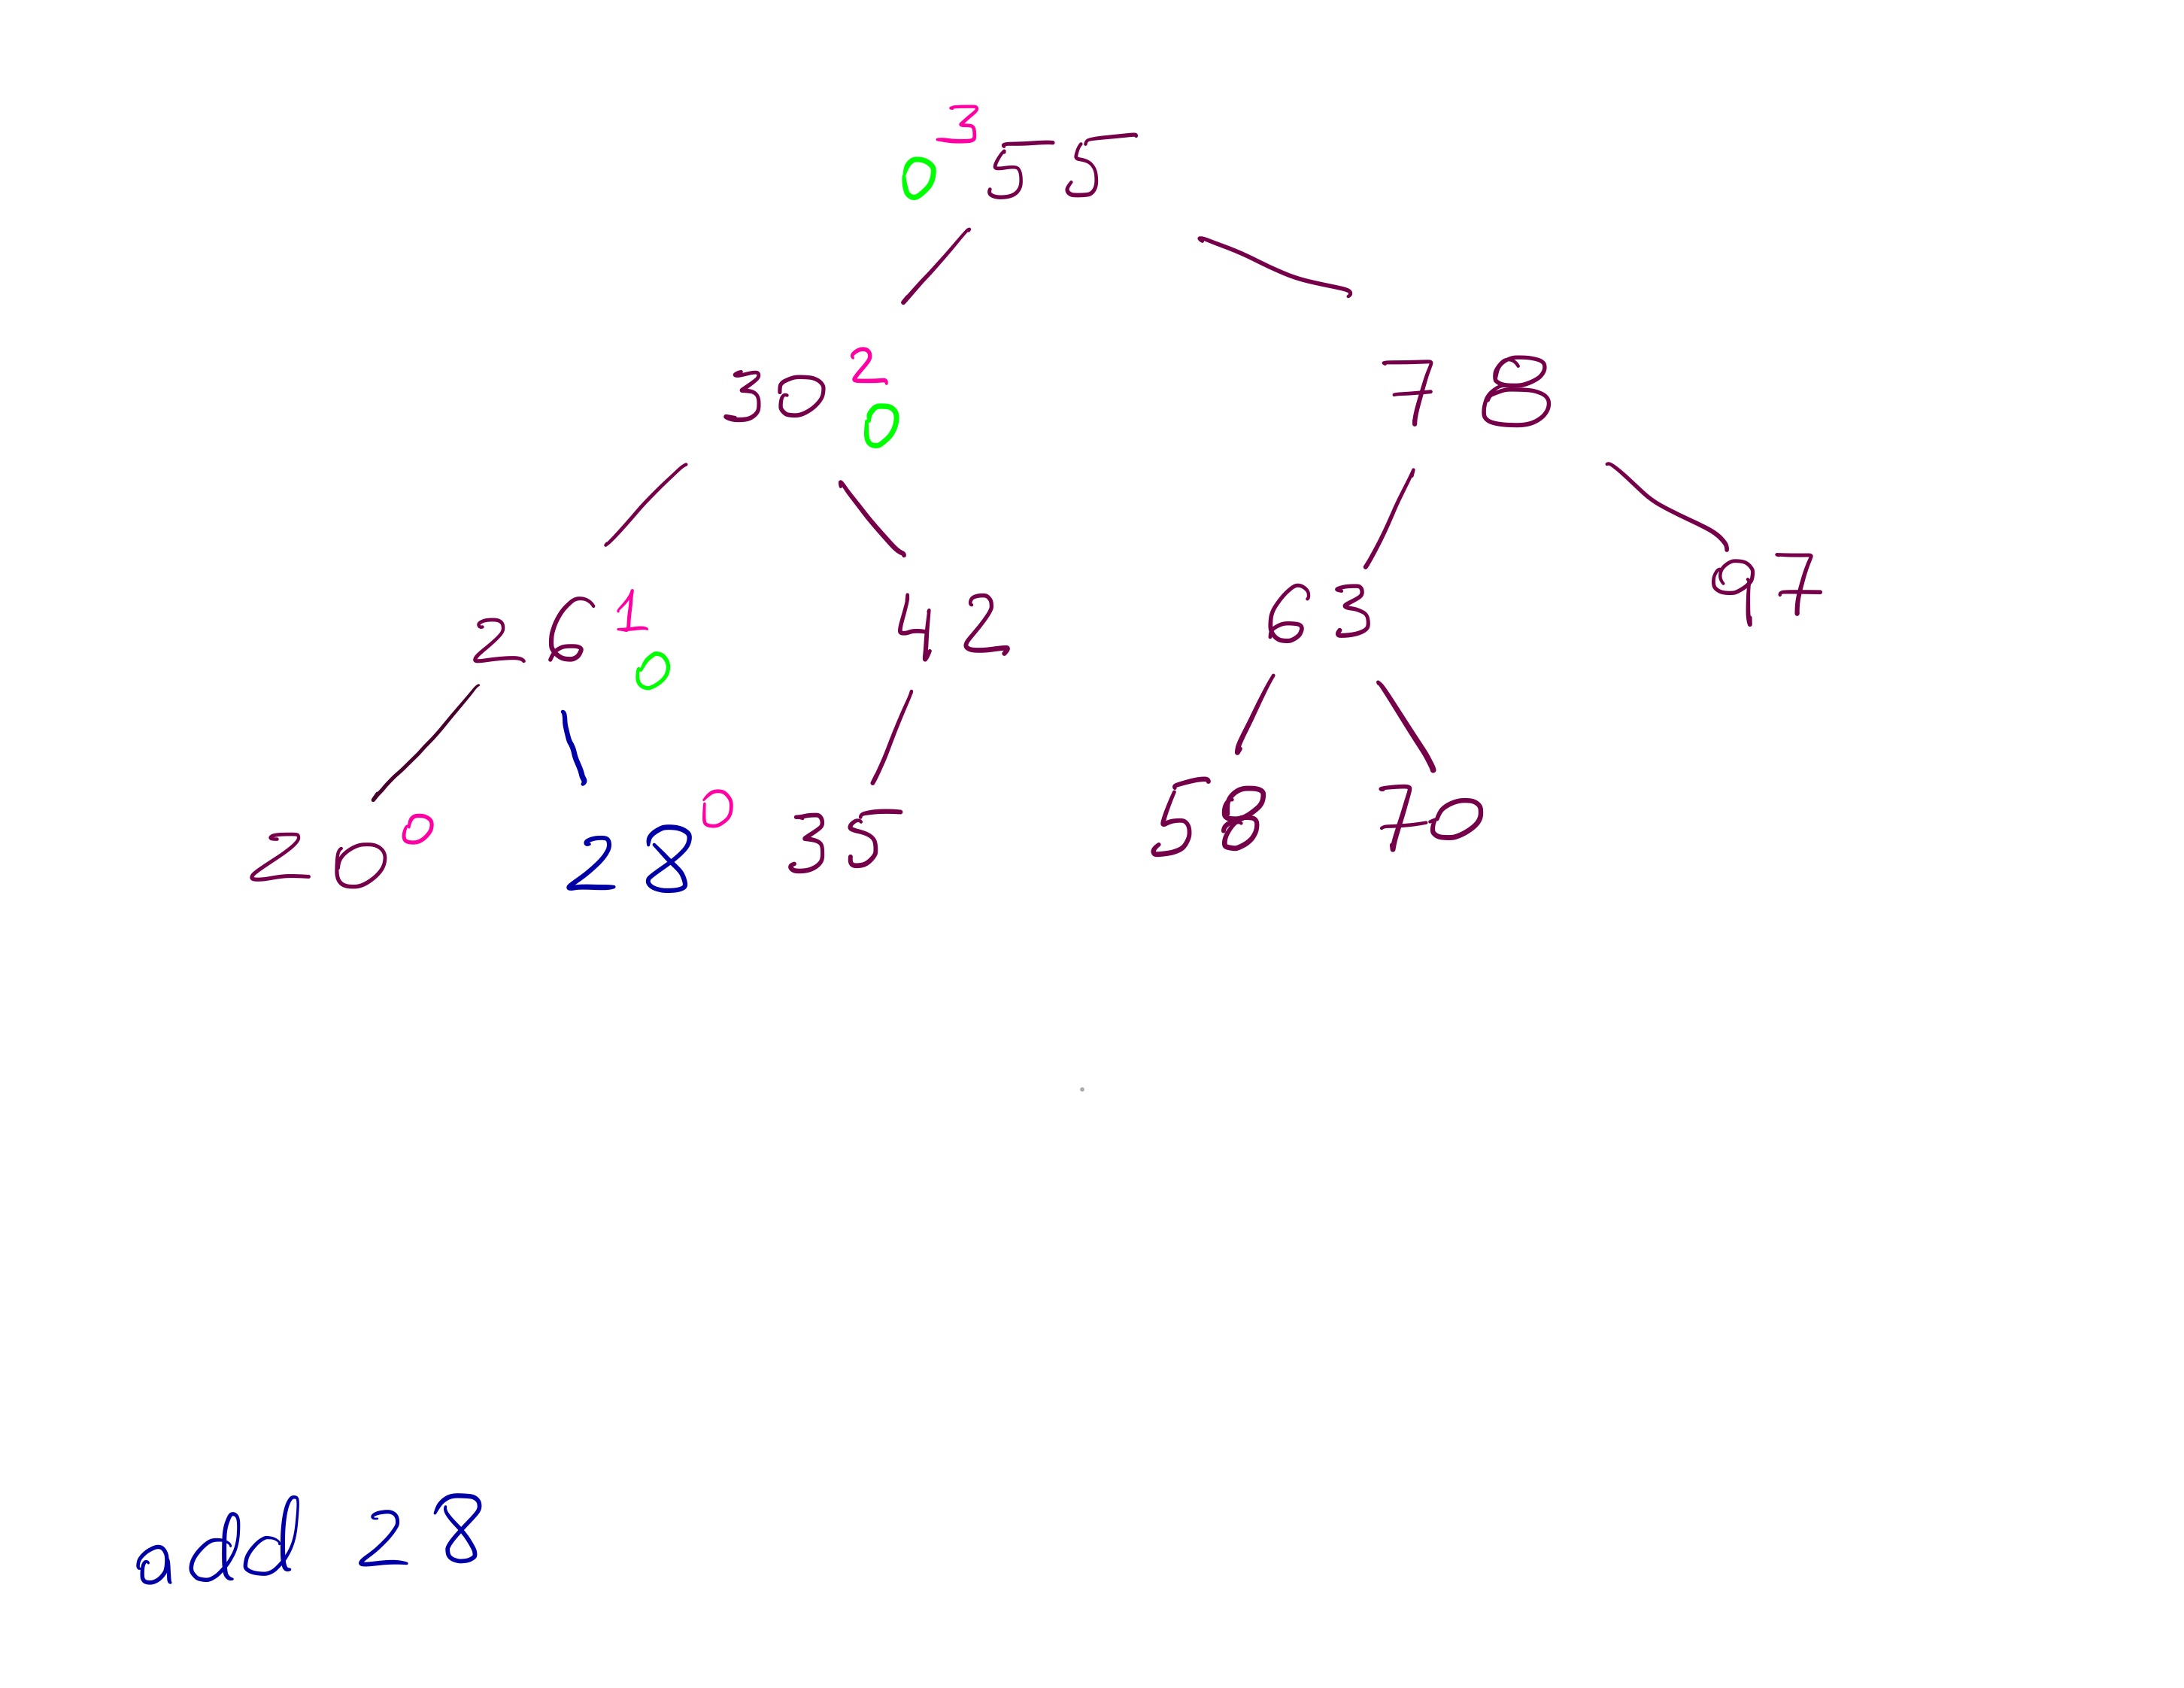 3
0 55
30 2
0
78
26 1
0
42
63
97
20 0
28 0
35
58
70
add 28